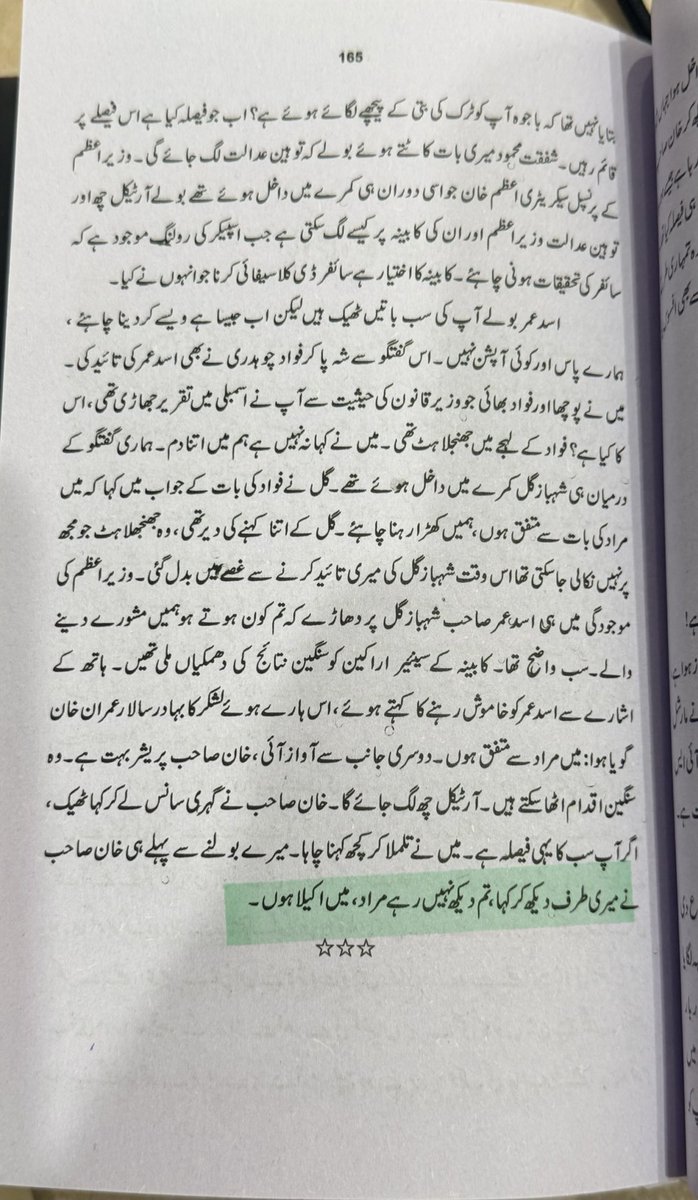 165
بتایا نہیں تھا کہ باجوہ آپ کو ٹرک کی بتی کے پیچھے لگائے ہوئے ہے؟ اب جو فیصلہ کیا ہے اس فیصلے پر
قائم رہیں۔ شفقت محمود میری بات کاٹتے ہوئے بولے کہ توہین عدالت لگ جائے گی۔ وزیراعظم
کے پرنسپل سیکریٹری اعظم خان جو اسی دوران ہی کمرے میں داخل ہوئے تھے بولے آرٹیکل چھ اور
توہین عدالت وزیراعظم اور ان کی کابینہ پر کیسے لگ سکتی ہے جب اسپیکر کی رولنگ موجود ہے کہ
سائفر کی تحقیقات ہونی چاہئے۔ کابینہ کا اختیار ہے سائفر ڈی کلاسیفائی کرنا جو انہوں نے کیا۔
اسد عمر بولے آپ کی سب باتیں ٹھیک ہیں لیکن اب جیسا ہے ویسے کر دینا چاہئے،
ہمارے پاس اور کوئی آپشن نہیں۔ اس گفتگو سے شہ پا کر فواد چوہدری نے بھی اسد عمر کی تائید کی۔
میں نے پوچھا اور فواد بھائی جو وزیر قانون کی حیثیت سے آپ نے اسمبلی میں تقریر جھاڑی تھی، اس
کا کیا ہے؟ فواد کے لہجے میں جھنجلاہٹ تھی۔ میں نے کہا نہ نہیں ہے ہم میں اتنا دم۔ ہماری گفتگو کے
درمیان ہی شہباز گل کمرے میں داخل ہوئے تھے۔ گل نے فواد کی بات کے جواب میں کہا کہ میں
مراد کی بات سے متفق ہوں، ہمیں کھڑا رہنا چاہئے۔ گل کے اتنا کہنے کی دیر تھی، وہ جھنجھلاہٹ جو مجھ
پر نہیں نکالی جا سکتی تھا اس وقت شہباز گل کی میری تائید کرنے سے غصے میں بدل گئی۔ وزیراعظم کی
موجودگی میں ہی اسد عمر صاحب شہباز گل پر دھاڑے کہ تم کون ہوتے ہو ہمیں مشورے دینے
والے۔ سب واضح تھا۔ کابینہ کے سینئیر اراکین کو سنگین نتائج کی دھمکیاں ملی تھیں۔ ہاتھ کے
اشارے سے اسد عمر کو خاموش رہنے کا کہتے ہوئے، اس ہارے ہوئے لشکر کا بہادر سالار عمران خان
گویا ہوا: میں مراد سے متفق ہوں۔ دوسری جانب سے آواز آئی، خان صاحب پریشر بہت ہے۔ وہ
سنگین اقدام اٹھا سکتے ہیں۔ آرٹیکل چھ لگ جائے گا۔ خان صاحب نے گہری سانس لے کر کہا ٹھیک،
اگر آپ سب کا یہی فیصلہ ہے۔ میں نے تلملا کر کچھ کہنا چاہا۔ میرے بولنے سے پہلے ہی خان صاحب
نے میری طرف دیکھ کر کہا، تم دیکھ نہیں رہے مراد، میں اکیلا ہوں۔
☆☆☆